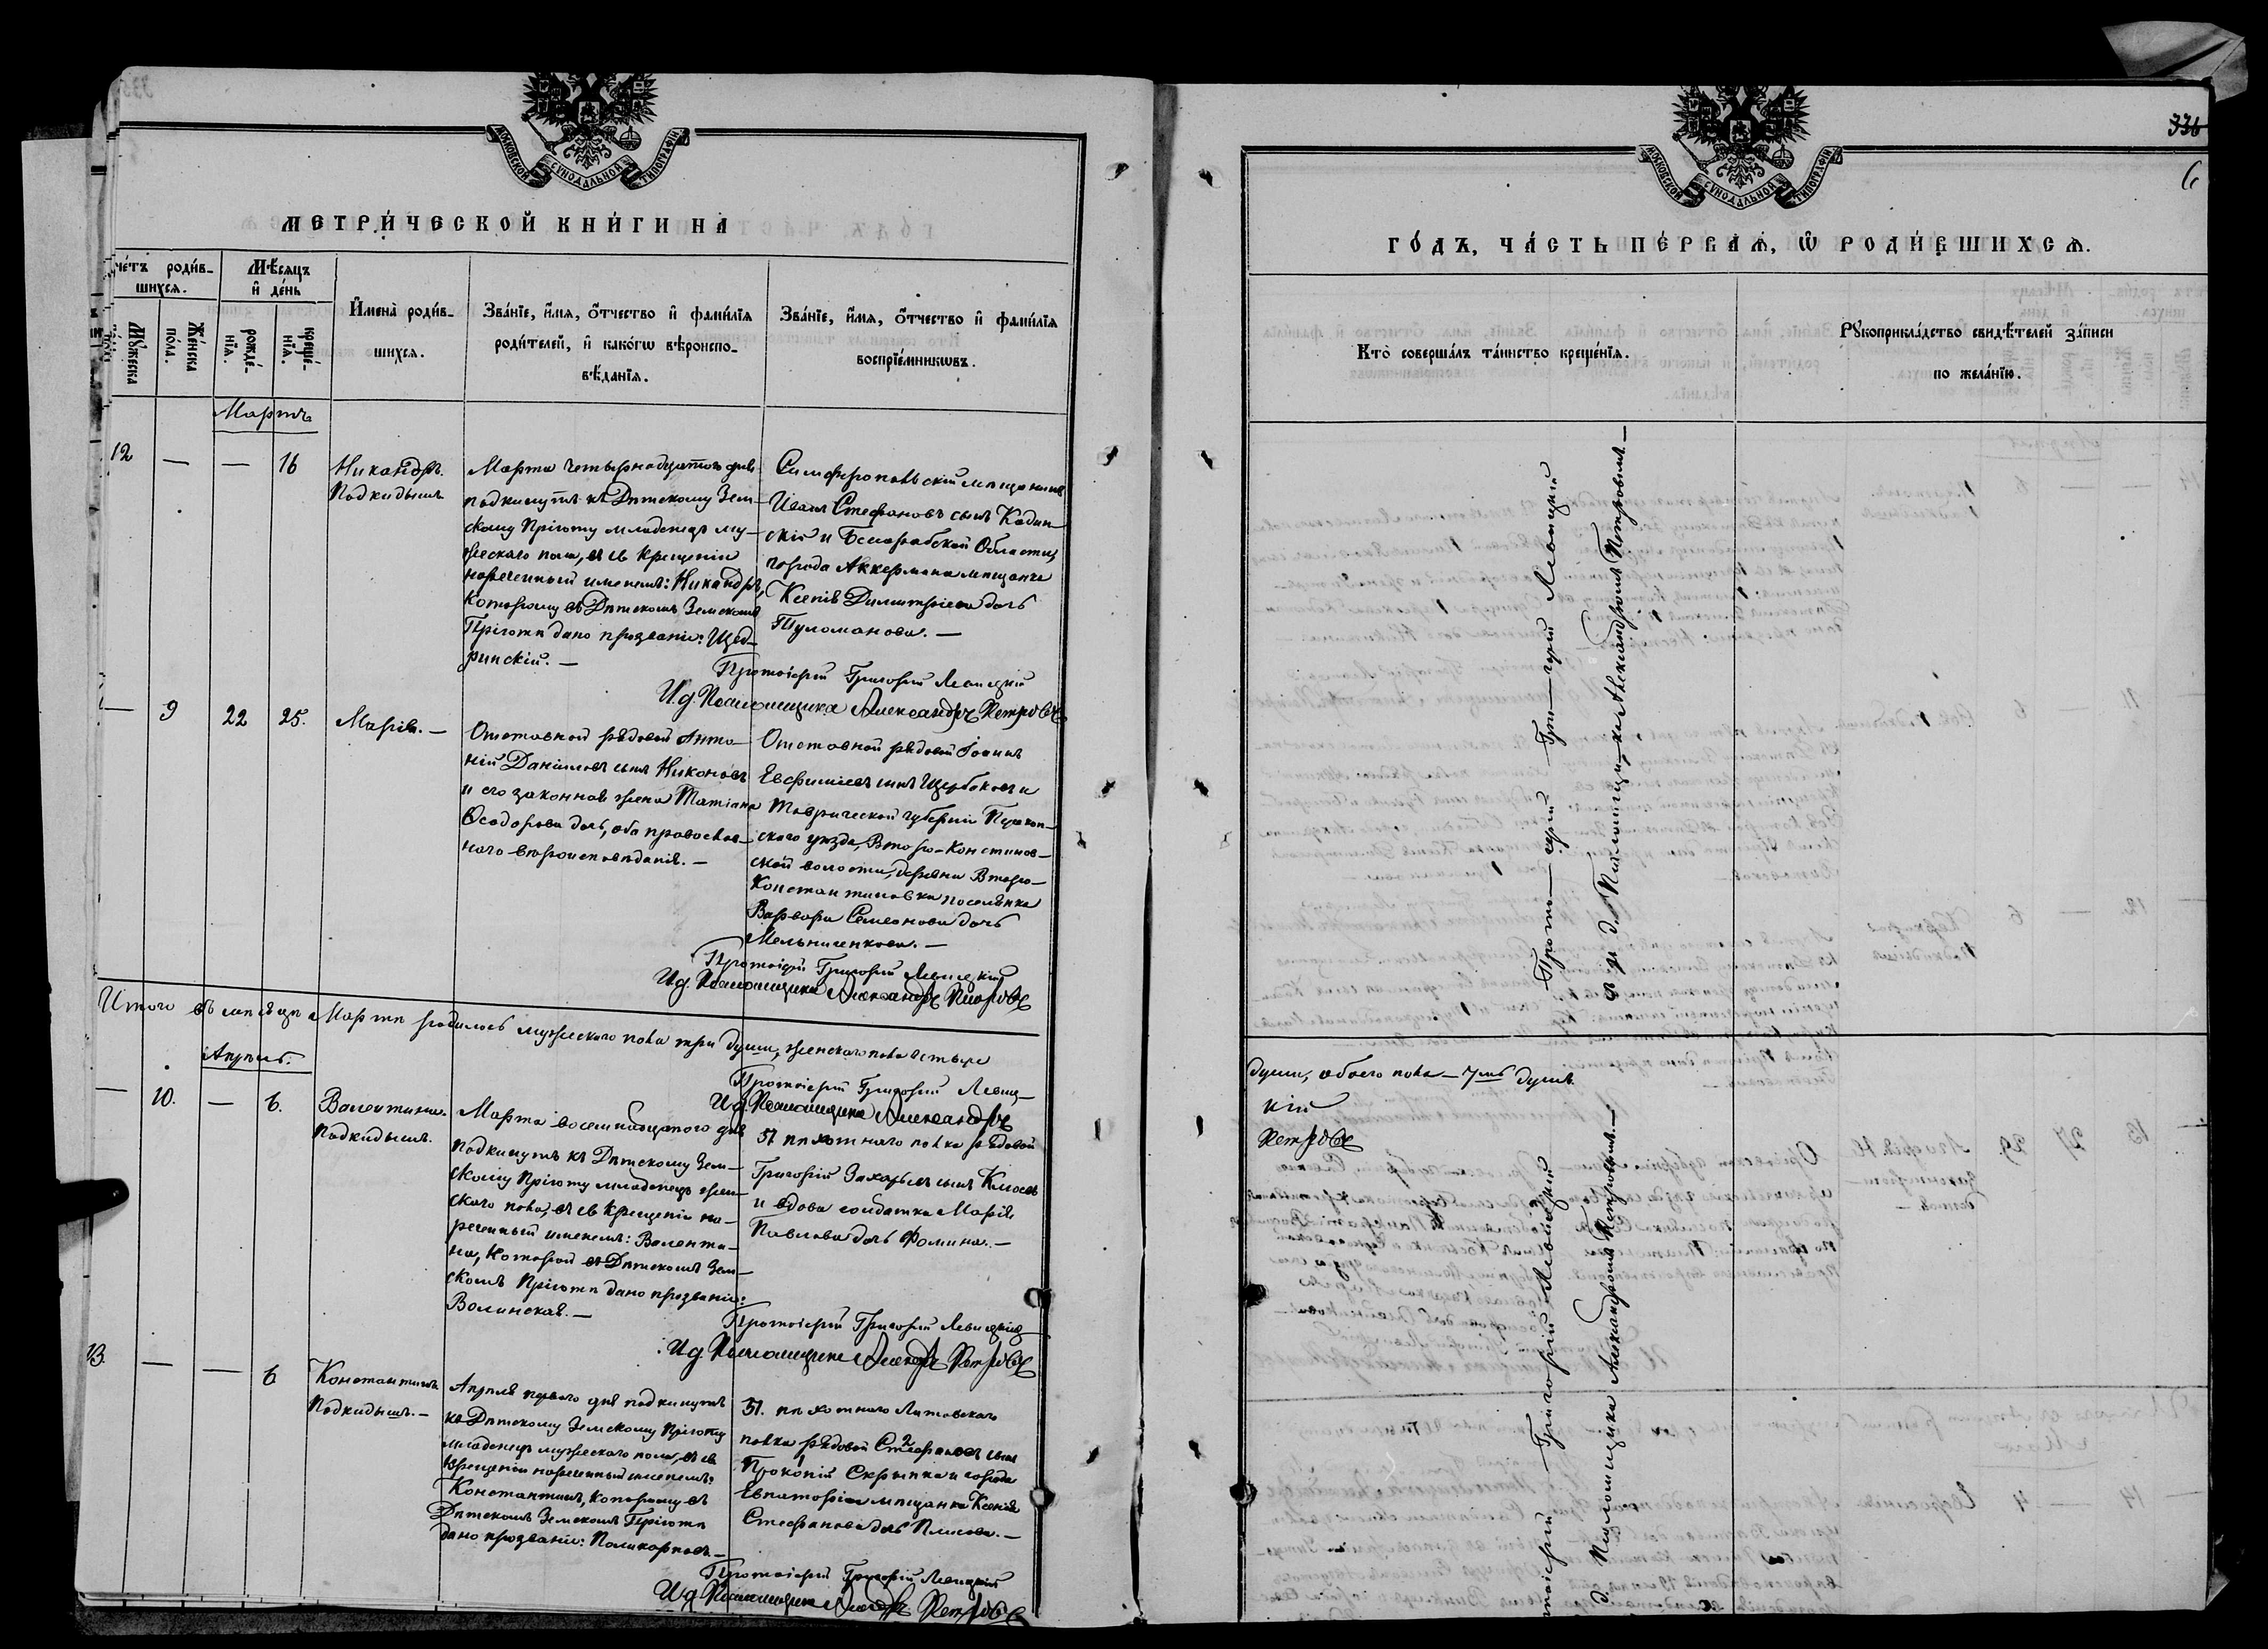 МОСКОВСКОЙ СѴНОДАЛЬНОЙ ТИПОГРАФІИ
МЕТРИ́ЧЕСКОЙ КНИ́ГИ НА
Сче́тъ роди́в-
шихся.
Мꙋ́жеска
по́ла.
Же́нска
по́ла.
Мѣ́сяцъ
и҆ де́нь
рожде́-
нїя.
креще́-
нїя.
И҆мена̀ роди́в-
шихся.
Зва́нїе, и҆́мя, ѻ҆́тчество и҆ фами́лїя
роди́телей, и҆ како́гѡ вѣроиспо-
вѣ́данїя.
Зва́нїе, и҆́мя, ѻ҆́тчество и҆ фами́лїя
воспрїе́мникѡвъ.
Мартъ
12 — — 16
Никандръ.
Подкидышъ
Марта четырнадцатого дня
подкинутъ къ Дѣтскому Зем-
скому Пріюту младенецъ му-
жескаго пола, въ св. крещеніи
нареченный именемъ: Никандръ,
которому въ Дѣтскомъ Земскомъ
Пріютѣ дано прозваніе: Щед-
ринскій. —
Симферопольскій мѣщанинъ
Иванъ Стефановъ сынъ Кадин-
скій и Бессарабской Области,
города Аккермана мѣщанка
Ксенія Димитріева дочь
Туломанова. —
Протоіерей Григорій Левицкій
И. д. Псаломщика Александръ Петровъ
— 9 22 25.
Марія. —
Отставной рядовой Анто-
ній Даніиловъ сынъ Никоновъ
и его законная жена Татіана
Ѳеодорова дочь, оба православ-
наго вѣроисповѣданія. —
Отставной рядовой Іоаннъ
Евфиміевъ сынъ Щербаковъ и
Таврической губерніи Перекоп-
скаго уѣзда, Второ-Констинов-
ской волости, деревни Второ-
Константиновка поселянка
Варвара Семенова дочь
Мельниченкова. —
Протоіерей Григорій Левицкій
И. д. Псаломщика Александръ Петровъ
Итого въ мѣсяцѣ Мартѣ родилось мужескаго пола три души, женскаго пола четыре
Протоіерей Григорій Левиц-
И. д. Псаломщика Александръ
Апрѣль.
— 10. — 6.
Валентина.
Подкидышъ.
Марта восемнадцатого дня
подкинутъ къ Дѣтскому Зем-
скому Пріюту младенецъ жен-
скаго пола, въ св. крещеніи на-
реченный именемъ: Валенти-
на, которой въ Дѣтскомъ Зем-
скомъ Пріютѣ дано прозваніе:
Волинская. —
51 пѣхотнаго полка рядовой
Григорій Захарьевъ сынъ
и вдова солдатка Марія
Павлова дочь Фомина. —
Протоіерей Григорій Левицкій
И. д. Псаломщика Александръ Петровъ
13. — — 6
Константинъ
Подкидышъ. —
Апрѣля перваго дня подкинутъ
къ Дѣтскому Земскому Пріюту
младенецъ мужескаго пола, въ св.
крещеніи нареченный именемъ:
Константинъ, которому въ
Дѣтскомъ Земскомъ Пріютѣ
дано прозваніе: Поликарповъ. —
51. пѣхотнаго Литовскаго
полка рядовой Стефановъ 2 сынъ
Прокопій 1 Скрыпка и города
Евпаторіи мѣщанка Ксенія
Стефанова дочь —
Протоіерей Григорій Левицкій
И. д. Псаломщика Александръ Петровъ
МОСКОВСКОЙ СѴНОДАЛЬНОЙ ТИПОГРАФІИ
336
6
ГО́ДЪ, ЧА́СТЬ ПЕ́РВАЯ, Ѡ РОДИ́ВШИХСЯ.
Кто̀ соверша́лъ та́инство креще́нїя.
Рꙋкоприкла́дство свидѣ́телей за́писи
по жела́нїю.
Прото- ерей Гри- горій Левицкій
и. д. Псаломщи- ка Александромъ Петровымъ. —
души, обоего пола — 7мь душъ.
кій
Петровъ
Протоіерей Григорій Левицкій
и. д. Псаломщика Александромъ Петровымъ. —